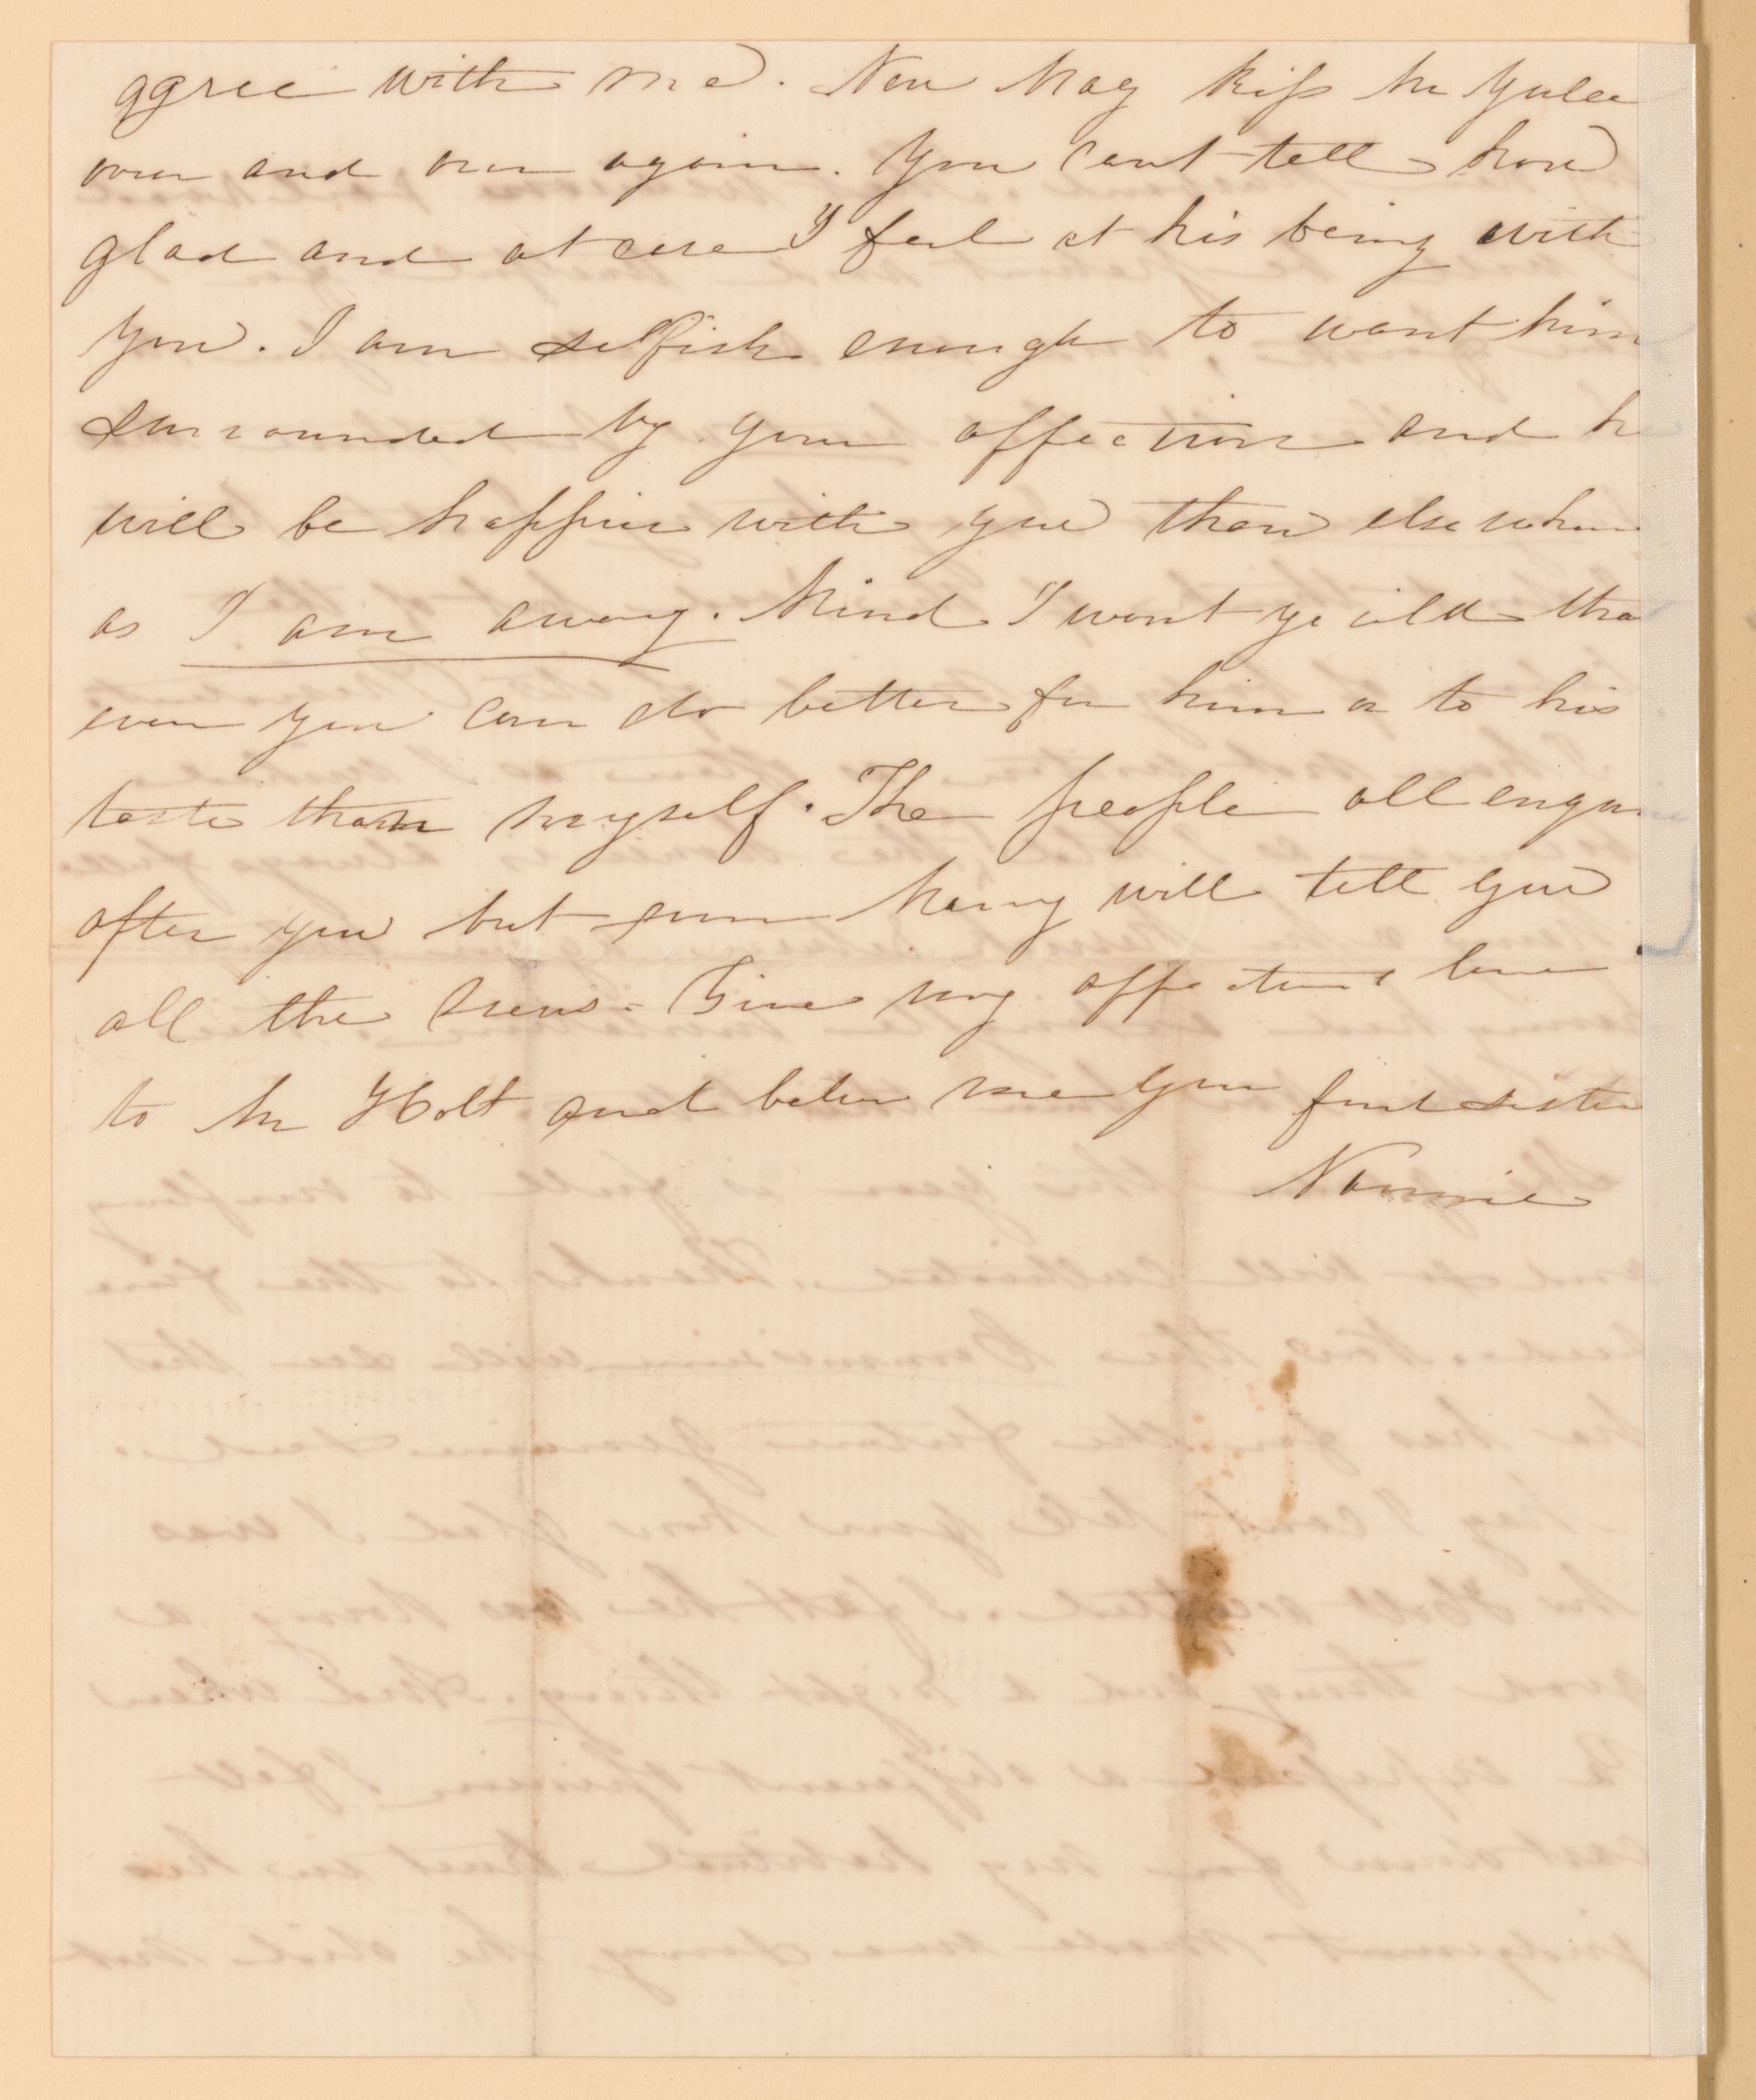 agree with me. Now Mag kiss Mr Yulee
over and over again. You cant tell how
glad and at ease I feel at his being with
you. I am selfish enough to want him
surrounded by your affection and he
will be happier with you than elsewhere
as I am away. Mind I wont yeild tha
even you can do better for him or to his
taste than myself. The people all enqu
after you but Harry will tell you
all the news. Give my affectionate love
to Mr Holt and believe me your fond sister
Nannie